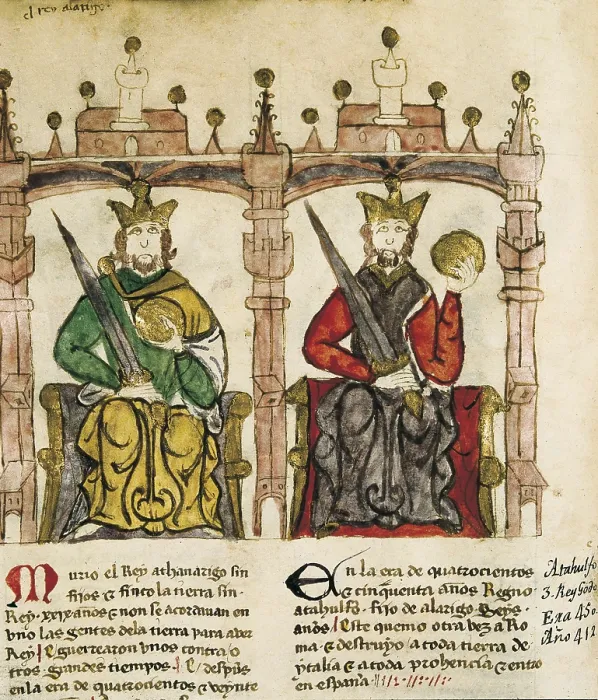 el rey alarigo.
Murio el Rey athanarigo sin
fijos ⁊ finco la tierra sin·
Rey· xxix· años ⁊ non se acordauan en
vno las gentes dela tierra para auer
Rey ⁊ guerrearon vnos contra o
tros· grandes tiempos· E despues
en la era de quatrocientos ⁊ veynte
En la era de quatrocientos
⁊ cinquenta años Regno
atahulfo· fijo de alarigo Seys·
años· Este quemo otra vez a Ro
ma ⁊ destruyo a toda tierra de
ytalia ⁊ a toda prohencia ⁊ entro
en españa
Atahulfo
3. Rey Godo
Era 450
Año 412